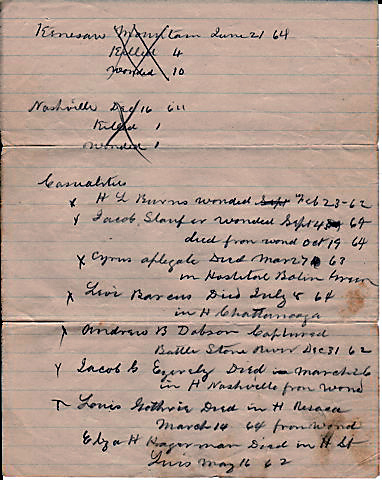 Kenesaw Mountain June 21 64
Killed 4
wonded 10
Nashville Dec 16 64
Killed 1
wonded 1
Casualties
x H L Burns wonded Sept Feb 23-62
x Jacob Staufer wonded Sept 4 64
died from wond Oct 19 64
x Cyrus aplegate Died Mar 27 63
in Hospital Bolin Green
x Livi Barcus Died July 8 64
in H Chattanooga
x Andrew B Dobson Captured
Battle Stone River Dec 31 62
x Jacob G Died in March 26
in H Nashville from wond
x Louis Gothrie Died in H Resaca
March 14 64 from Wond
Elza H Hagerman Died in H St
Luis May 16 62